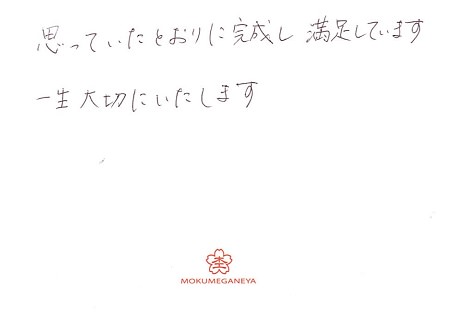 思っていたとおりに完成し 満足しています
一生大切にいたします
MOKUMEGANEYA